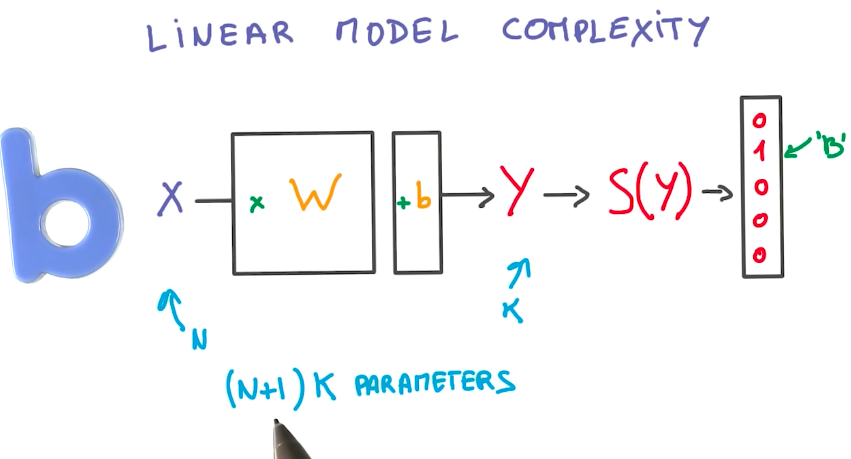 LINEAR MODEL COMPLEXITY
b X x W + b Y S(Y) 0
1 'B'
0
0
0
N K
(N+1) K PARAMETERS